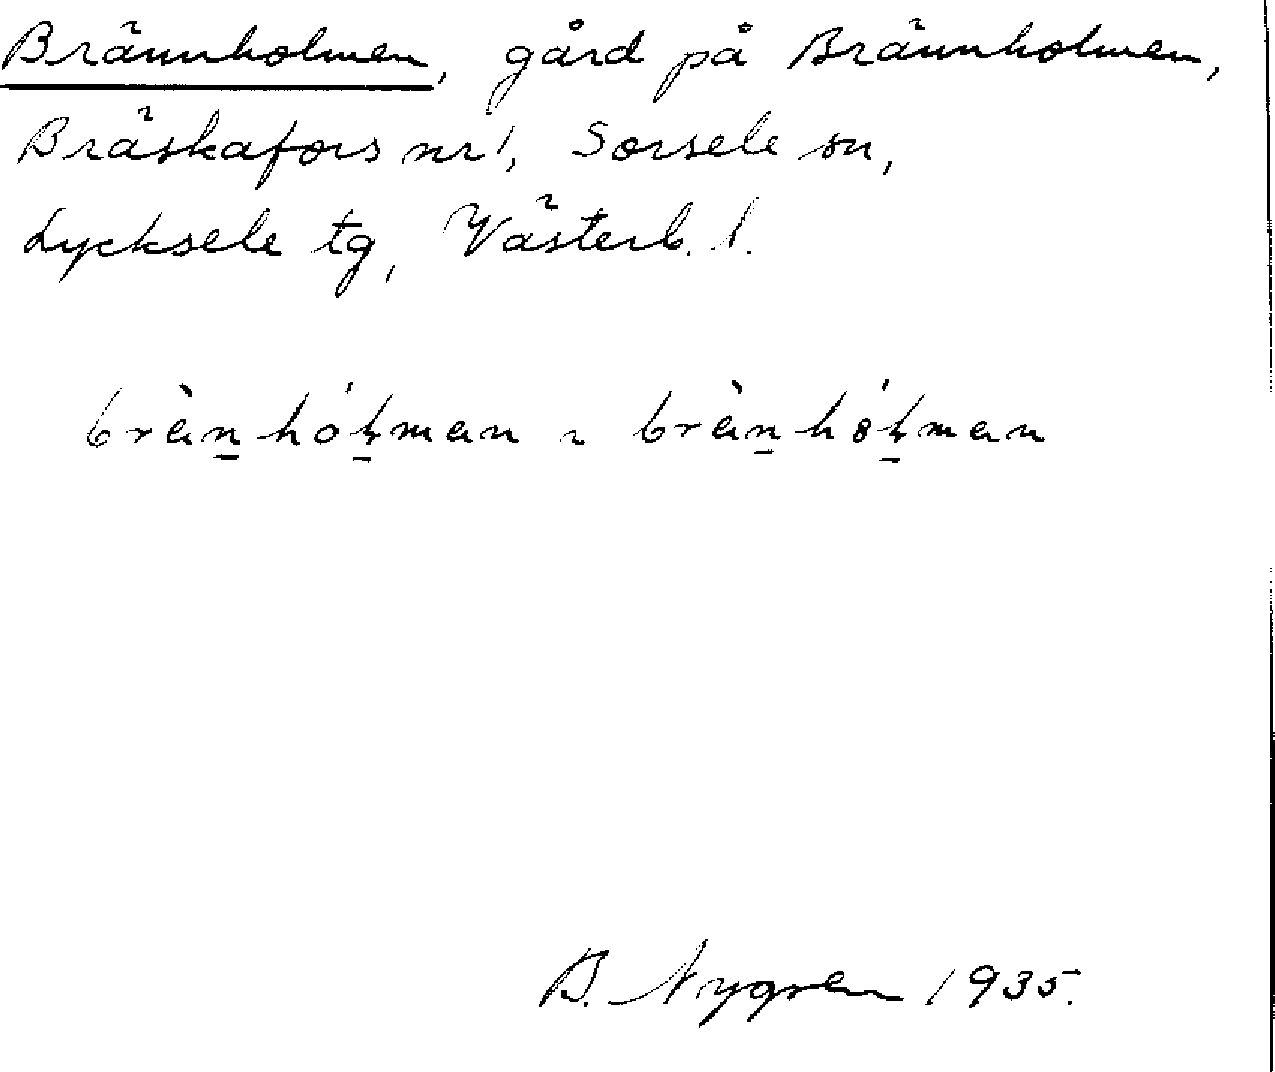 Brännholmen, gård på Brännholmen,
Bräskafors nr 1, Sorsele sn,
Lycksele tg, Västerb. l.
B. Nygren 1935.